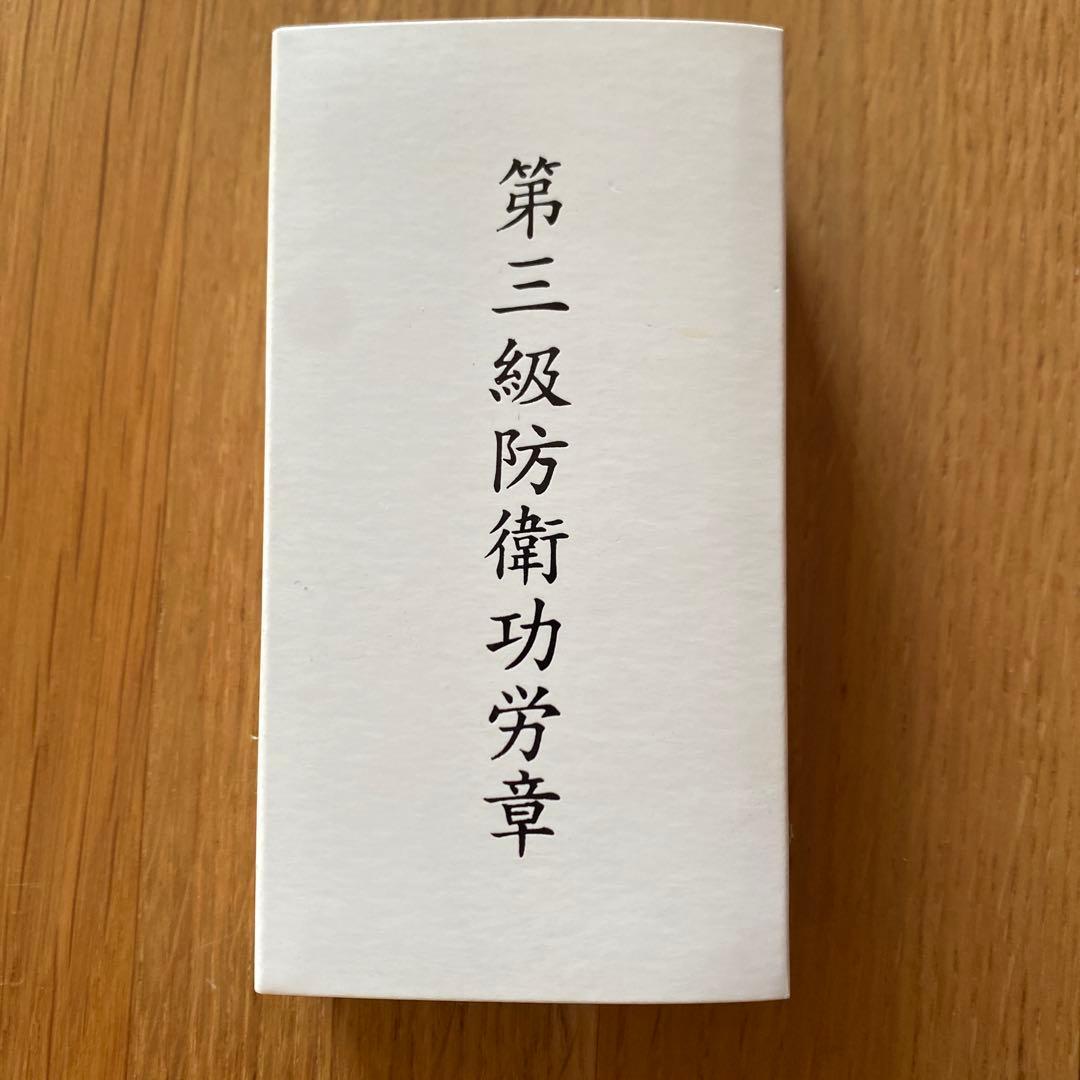 第三級防衛功労章